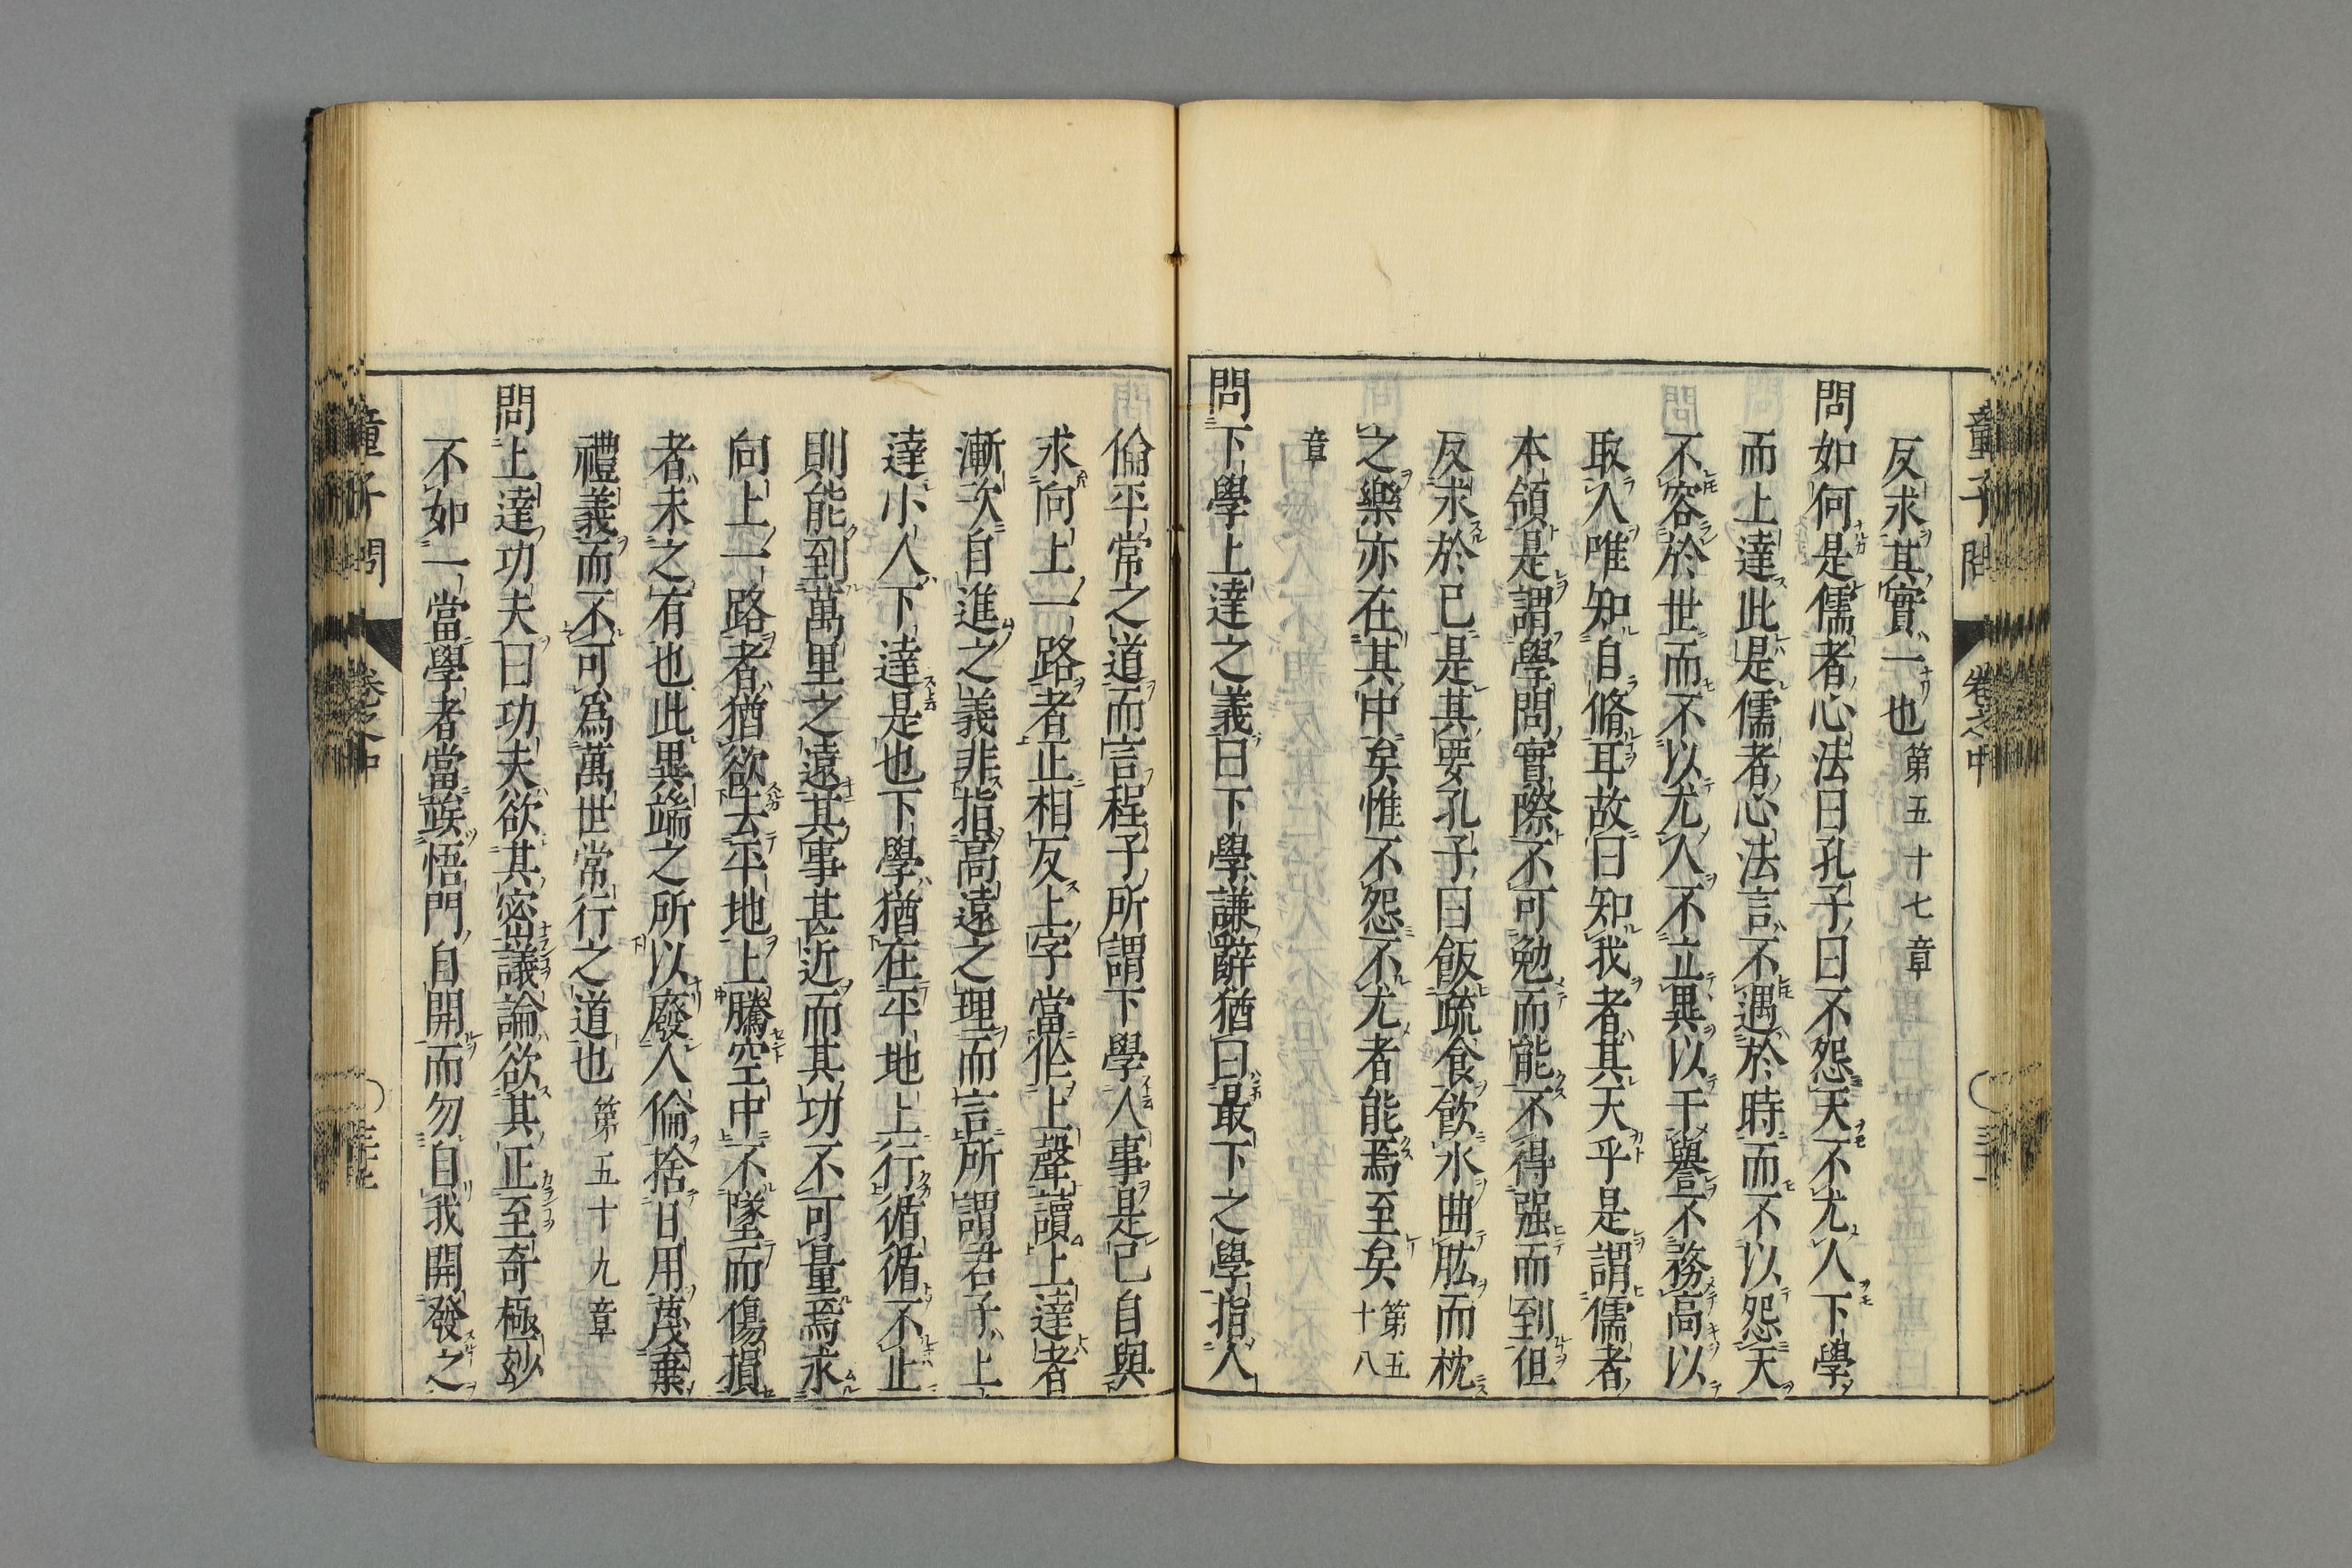 童子問 卷之中
反求其實一也第五十七章
問如何是儒者心法曰孔子曰不怨天不尤人下學
而上達此是儒者心法言不遇於時而不以怨天
不容於世而不以尤人不立異以干譽不務高以
取人唯知自脩耳故曰知我者其天乎是謂儒者
本領是謂學問實際不可勉而能不得强而到但
反求於己是其要孔子曰飯疏食飮水曲肱而枕
之樂亦在其中矣惟不怨不尤者能焉至矣第五十八
章
問下學上達之義曰下學謙辭猶曰最下之學指人
倫平常之道而言程子所謂下學人事是已自與
求向上一路者正相反上字當作上聲讀上達者
漸次自進之義非指高遠之理而言所謂君子上
達小人下達是也下學猶在平地上行循循不止
則能到萬里之遠其事甚近而其功不可量焉求
向上一路者猶欲去平地上騰空中不墜而傷損
者未之有也此異端之所以廢人倫捨日用蔑棄
禮義而不可爲萬世常行之道也第五十九章
問上達功夫曰功夫欲其密議論欲其正至奇極玅
不如一當學者當竢悟門自開而勿自我開發之
童子問 卷之中